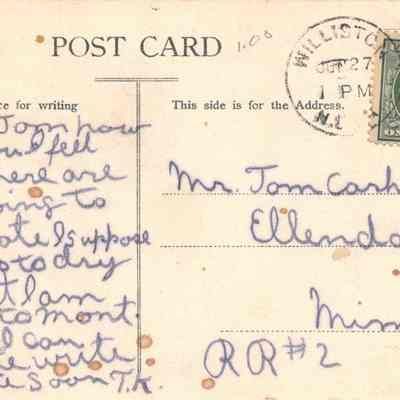 POST CARD
1.00
WILLISTON
JUN 27
1 PM
N.D.
ce for writing
This side is for the Address.
Tom how
you fell
here are
oing to
ate I suppose
too dry
t I am
to mont.
I can
e write
e soon T.K.
Mr. Tom Cash
Ellenda
Minn
RR#2